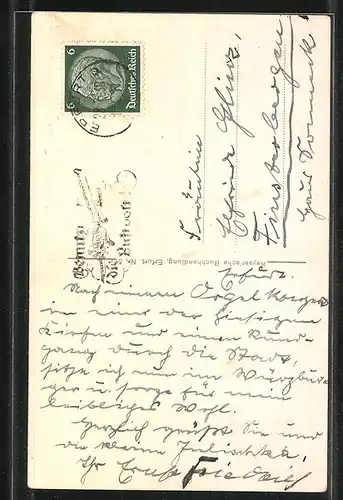 6
Deutsches Reich
ERFURT
Benützt
die Luftpost
Fräulein
Elfriede
Finsterbergen
Haus
Keyser'sche Buchhandlung, Erfurt.
Erfurt.
Nach einem Orgelkonzert
in einer der hiesigen
Kirchen und einem Rund-
gang durch die Stadt,
sitze ich nun im Würzbur-
ger u. sorge für mein
leibliches Wohl.
Herzlich grüßt Sie und
die kleine
Ihr Ernst Friedrich